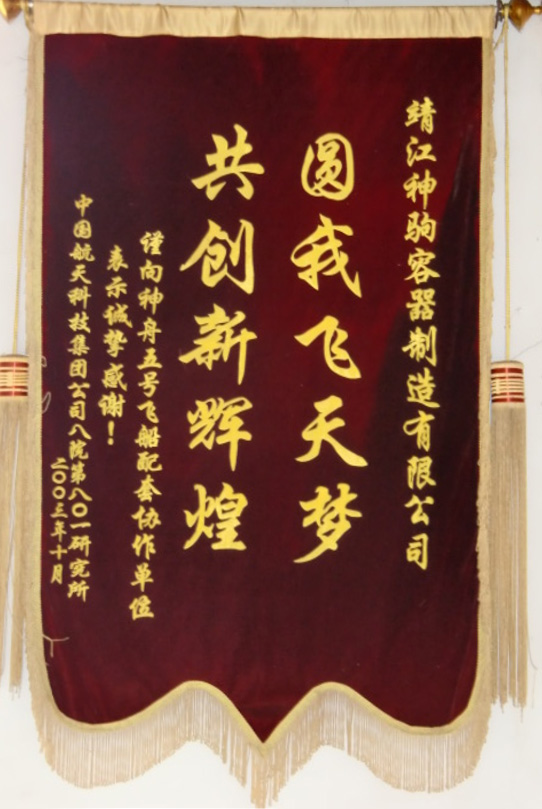 靖江神驹容器制造有限公司
圆我飞天梦
共创新辉煌
谨向神舟五号飞船配套协作单位
表示诚挚感谢！
中国航天科技集团公司八院第八〇一研究所
二〇〇三年十月